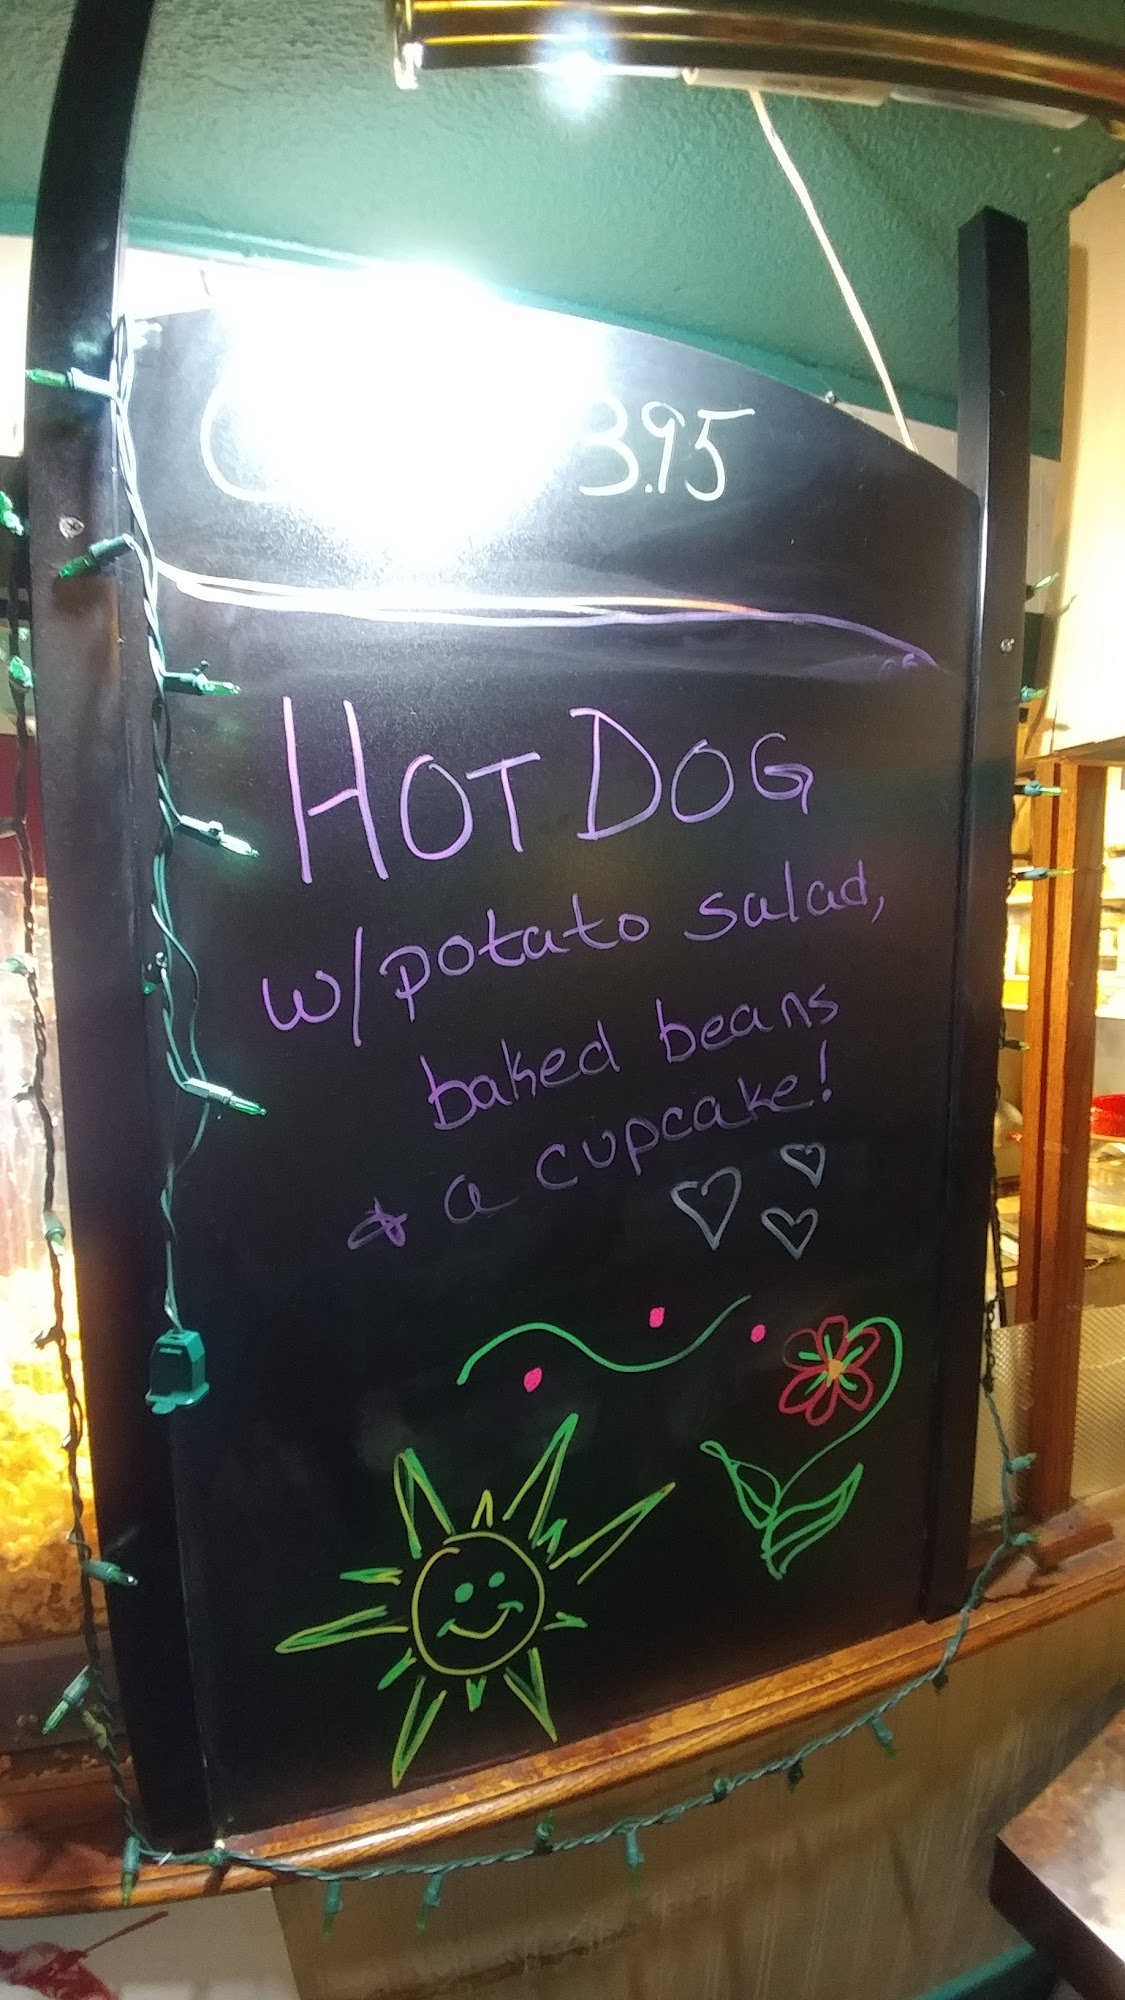 3.95
HOT DOG
w/potato salad,
baked beans
& a cupcake!